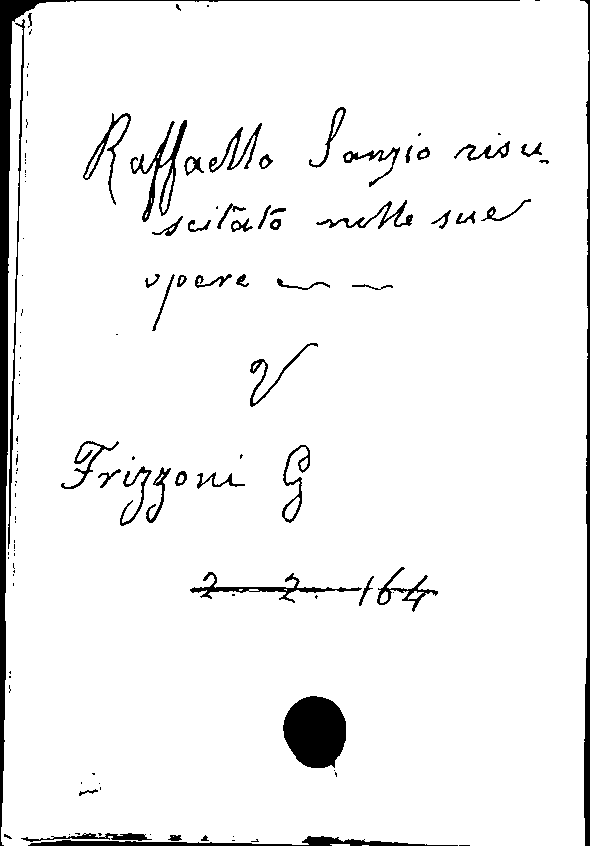 Raffaello Sanzio risu-
scitato nelle sue
opere — —
V
Frizzoni G
2. 2. 164